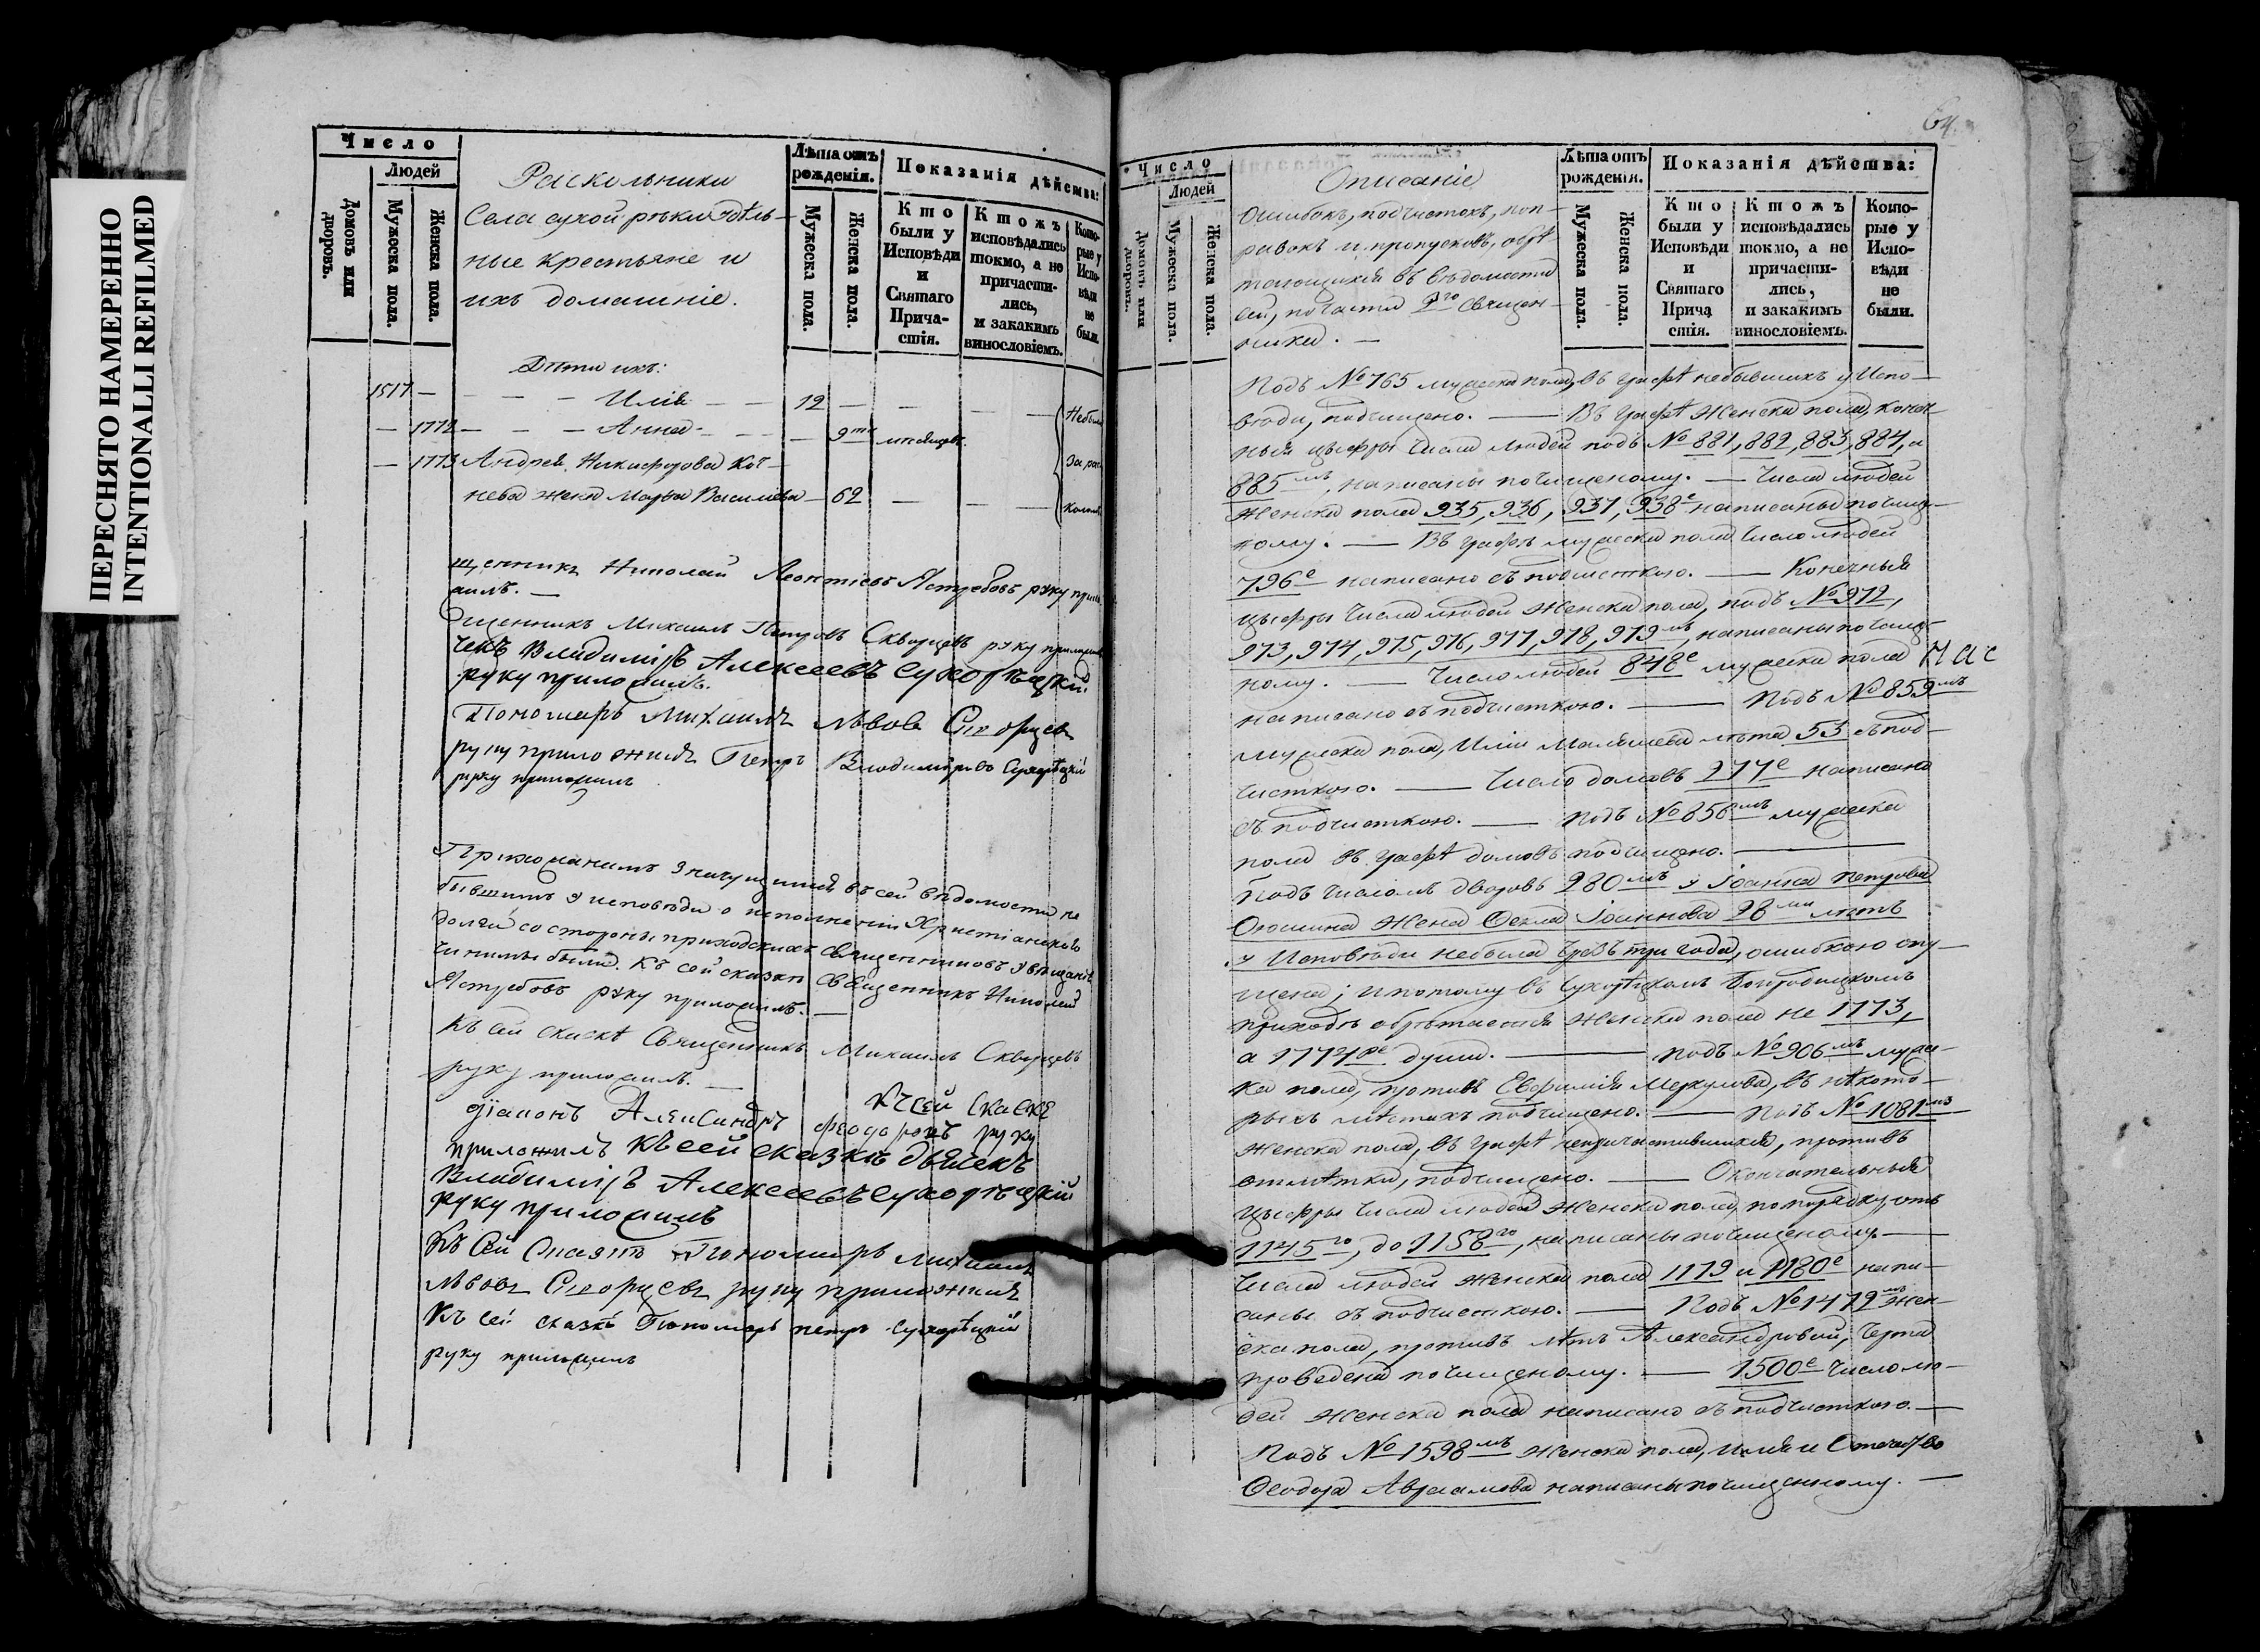 ПЕРЕСНЯТО НАМЕРЕННО
INTENTIONALLI REFILMED
Число
Людей
Домовъ или дворовъ.
Мужеска пола.
Женска пола.
Раскольники
Села сухой реки удѣль-
ные крестьяне и
ихъ домашніе.
Лѣта отъ рожденія.
Мужеска пола.
Женска пола.
Показанія дѣйства:
Кто были у Исповѣди и Святаго Причастія.
Ктожъ исповѣдались токмо, а не причастились, и закакимъ винословіемъ.
Которые у Исповѣди не были.
Дѣти ихъ:
1517 — — — — Илія — — 12 — — — —
— 1772 — — — Анна — — — 9ти мѣсяцевъ.
Небыли
— 1773 Андрея Никифорова Коч-
за рас
нева жена Марья Васильева — 62 — — —
колом
щенникъ Николай Леонтіевъ Ястребовъ руку прило
жилъ. —
щенникъ Михаилъ Петровъ Скворцевъ руку приложилъ
чекъ Владиміръ Алексеевъ Сухорѣцкій
руку приложилъ.
Пономарь Михаилъ Львовъ
руку приложилъ Петръ Сухорѣцкій
руку приложилъ
Прихожанамъ значущимся въ сей вѣдомости не
бывшимъ у исповѣди о исполненіи Христіанскаго
долга со стороны приходскихъ священниковъ увѣщанія
чинимы были. Къ сей сказкѣ Священникъ Николай
Ястребовъ руку приложилъ. —
Къ сей сказкѣ Священникъ Михаилъ Скворцевъ
руку приложилъ. —
Къ сей скаске
діаконъ Александръ руку
приложилъ Къ сей сказкѣ дьячекъ
Владиміръ Алексеевъ Сухорѣцкій
руку приложилъ
Къ сей Пономарь Михаилъ
Львовъ руку приложилъ
Къ сей сказкѣ Пономарь Петръ Сухорѣцкій
руку приложилъ
64.
Число
Людей
Домовъ или дворовъ.
Мужеска пола.
Женска пола.
Описаніе
ошибокъ, подчистокъ, поп-
равокъ и пропусковъ, обрѣ-
тающихся въ вѣдомости
сей, по части 2го Священ-
ника. —
Лѣта отъ рожденія.
Мужеска пола.
Женска пола.
Показанія дѣйства:
Кто были у Исповѣди и Святаго Прича стія.
Ктожъ исповѣдались токмо, а не причасти-лись, и закакимъ винословіемъ.
Кото-рые у Испо-вѣди не были.
Подъ № 765 мужеска пола, въ графѣ небывшихъ у Испо-
вѣди, подчищено. — Въ графѣ Женска пола, конеч-
ныя цыфры числа людей подъ № 881, 882, 883, 884, и
885мъ, написаны по чищеному. — Числа людей
Женска пола 935, 936, 937, 938е написаны по чище-
ному. — Въ графѣ мужеска пола число людей
796е написано съ подчисткою. — Конечныя
цыфры числа людей Женска пола, подъ № 972,
973, 974, 975, 976, 977, 978, 979мъ, написаны по чище-
ному. — Число людей 848е мужеска пола
написано съ подчисткою. — Подъ № 859мъ
мужеска пола, Иліи Малышева лѣта 53 съ под-
чисткою. — Число домовъ 277е написано
съ подчисткою. — Подъ № 856мъ мужеска
пола въ графѣ домовъ подчищено. —
Подъ числомъ дворовъ 280мъ у Іоанна Петрова
жена Фекла Іоаннова 28ми лѣтъ
у Исповѣди небыла чрезъ три года, ошибкою опу-
щена; и потому въ Сухорѣцкомъ Богородицкомъ
приходѣ обрѣтается женска пола не 1773,
а 1774ре души. — Подъ № 906мъ мужес-
ка пола, противъ Евфимія Меркулова, въ нѣкото-
рыхъ мѣстахъ подчищено. — Подъ № 1081мъ
Женска пола, въ графѣ непричастившихся, противъ
отмѣтки, подчищено. — Окончательныя
цыфры числа людей Женска пола, по порядку, отъ
1145го, до 1158го, написаны по чищеному —
Числа людей женска пола 1179 и 1180е напи-
саны съ подчисткою. — Подъ № 1472мъ Жен-
ска пола, противъ лѣтъ Александровой, черта
проведена по чищеному. — 1500е число лю-
дей Женска пола написано съ подчисткою. —
Подъ № 1598мъ Женска пола, имя и Отечество
Феодора Авраамова написаны по чищенному. —